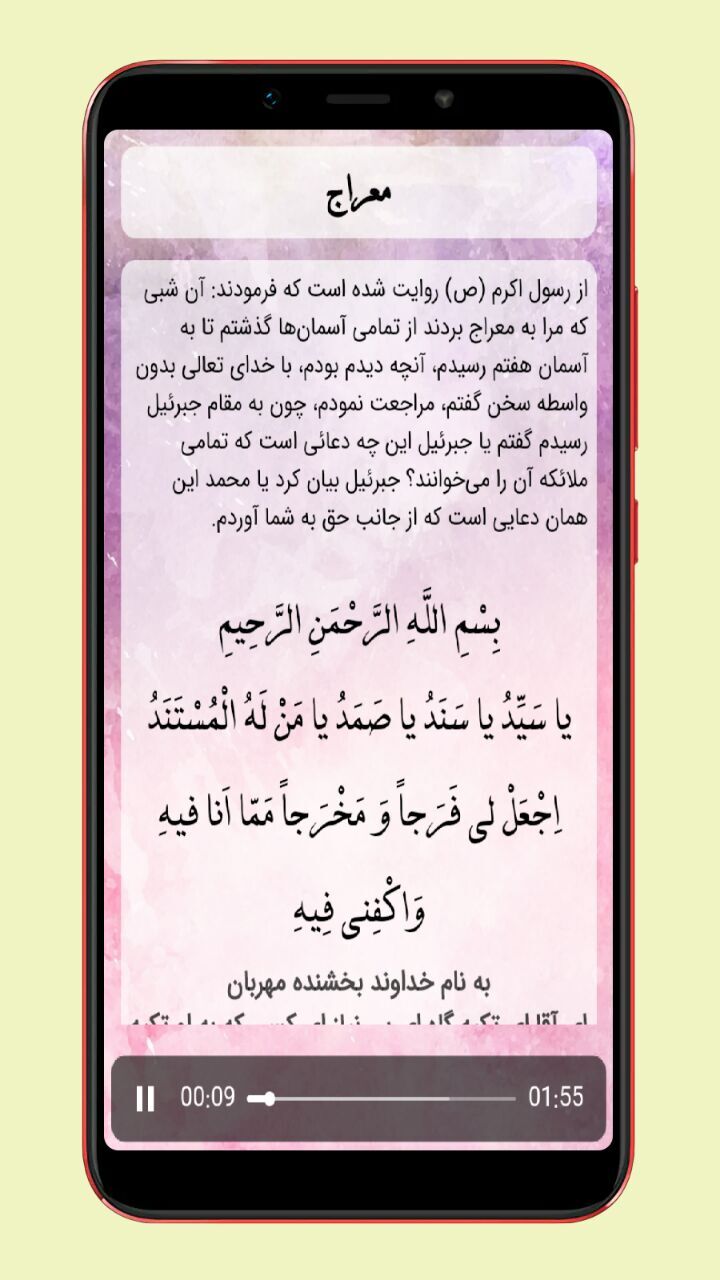 معراج
از رسول اکرم (ص) روایت شده است که فرمودند: آن شبی
که مرا به معراج بردند از تمامی آسمان‌ها گذشتم تا به
آسمان هفتم رسیدم، آنچه دیدم بودم، با خدای تعالی بدون
واسطه سخن گفتم، مراجعت نمودم، چون به مقام جبرئیل
رسیدم گفتم یا جبرئیل این چه دعائی است که تمامی
ملائکه آن را می‌خوانند؟ جبرئیل بیان کرد یا محمد این
همان دعایی است که از جانب حق به شما آوردم.
بِسْمِ اللَّهِ الرَّحْمَنِ الرَّحِیمِ
یا سَیِّدُ یا سَنَدُ یا صَمَدُ یا مَنْ لَهُ الْمُسْتَنَدُ
اِجْعَلْ لی فَرَجاً وَ مَخْرَجاً مَمّا اَنا فیهِ
وَاکْفِنی فِیهِ
به نام خداوند بخشنده مهربان
00:09
01:55